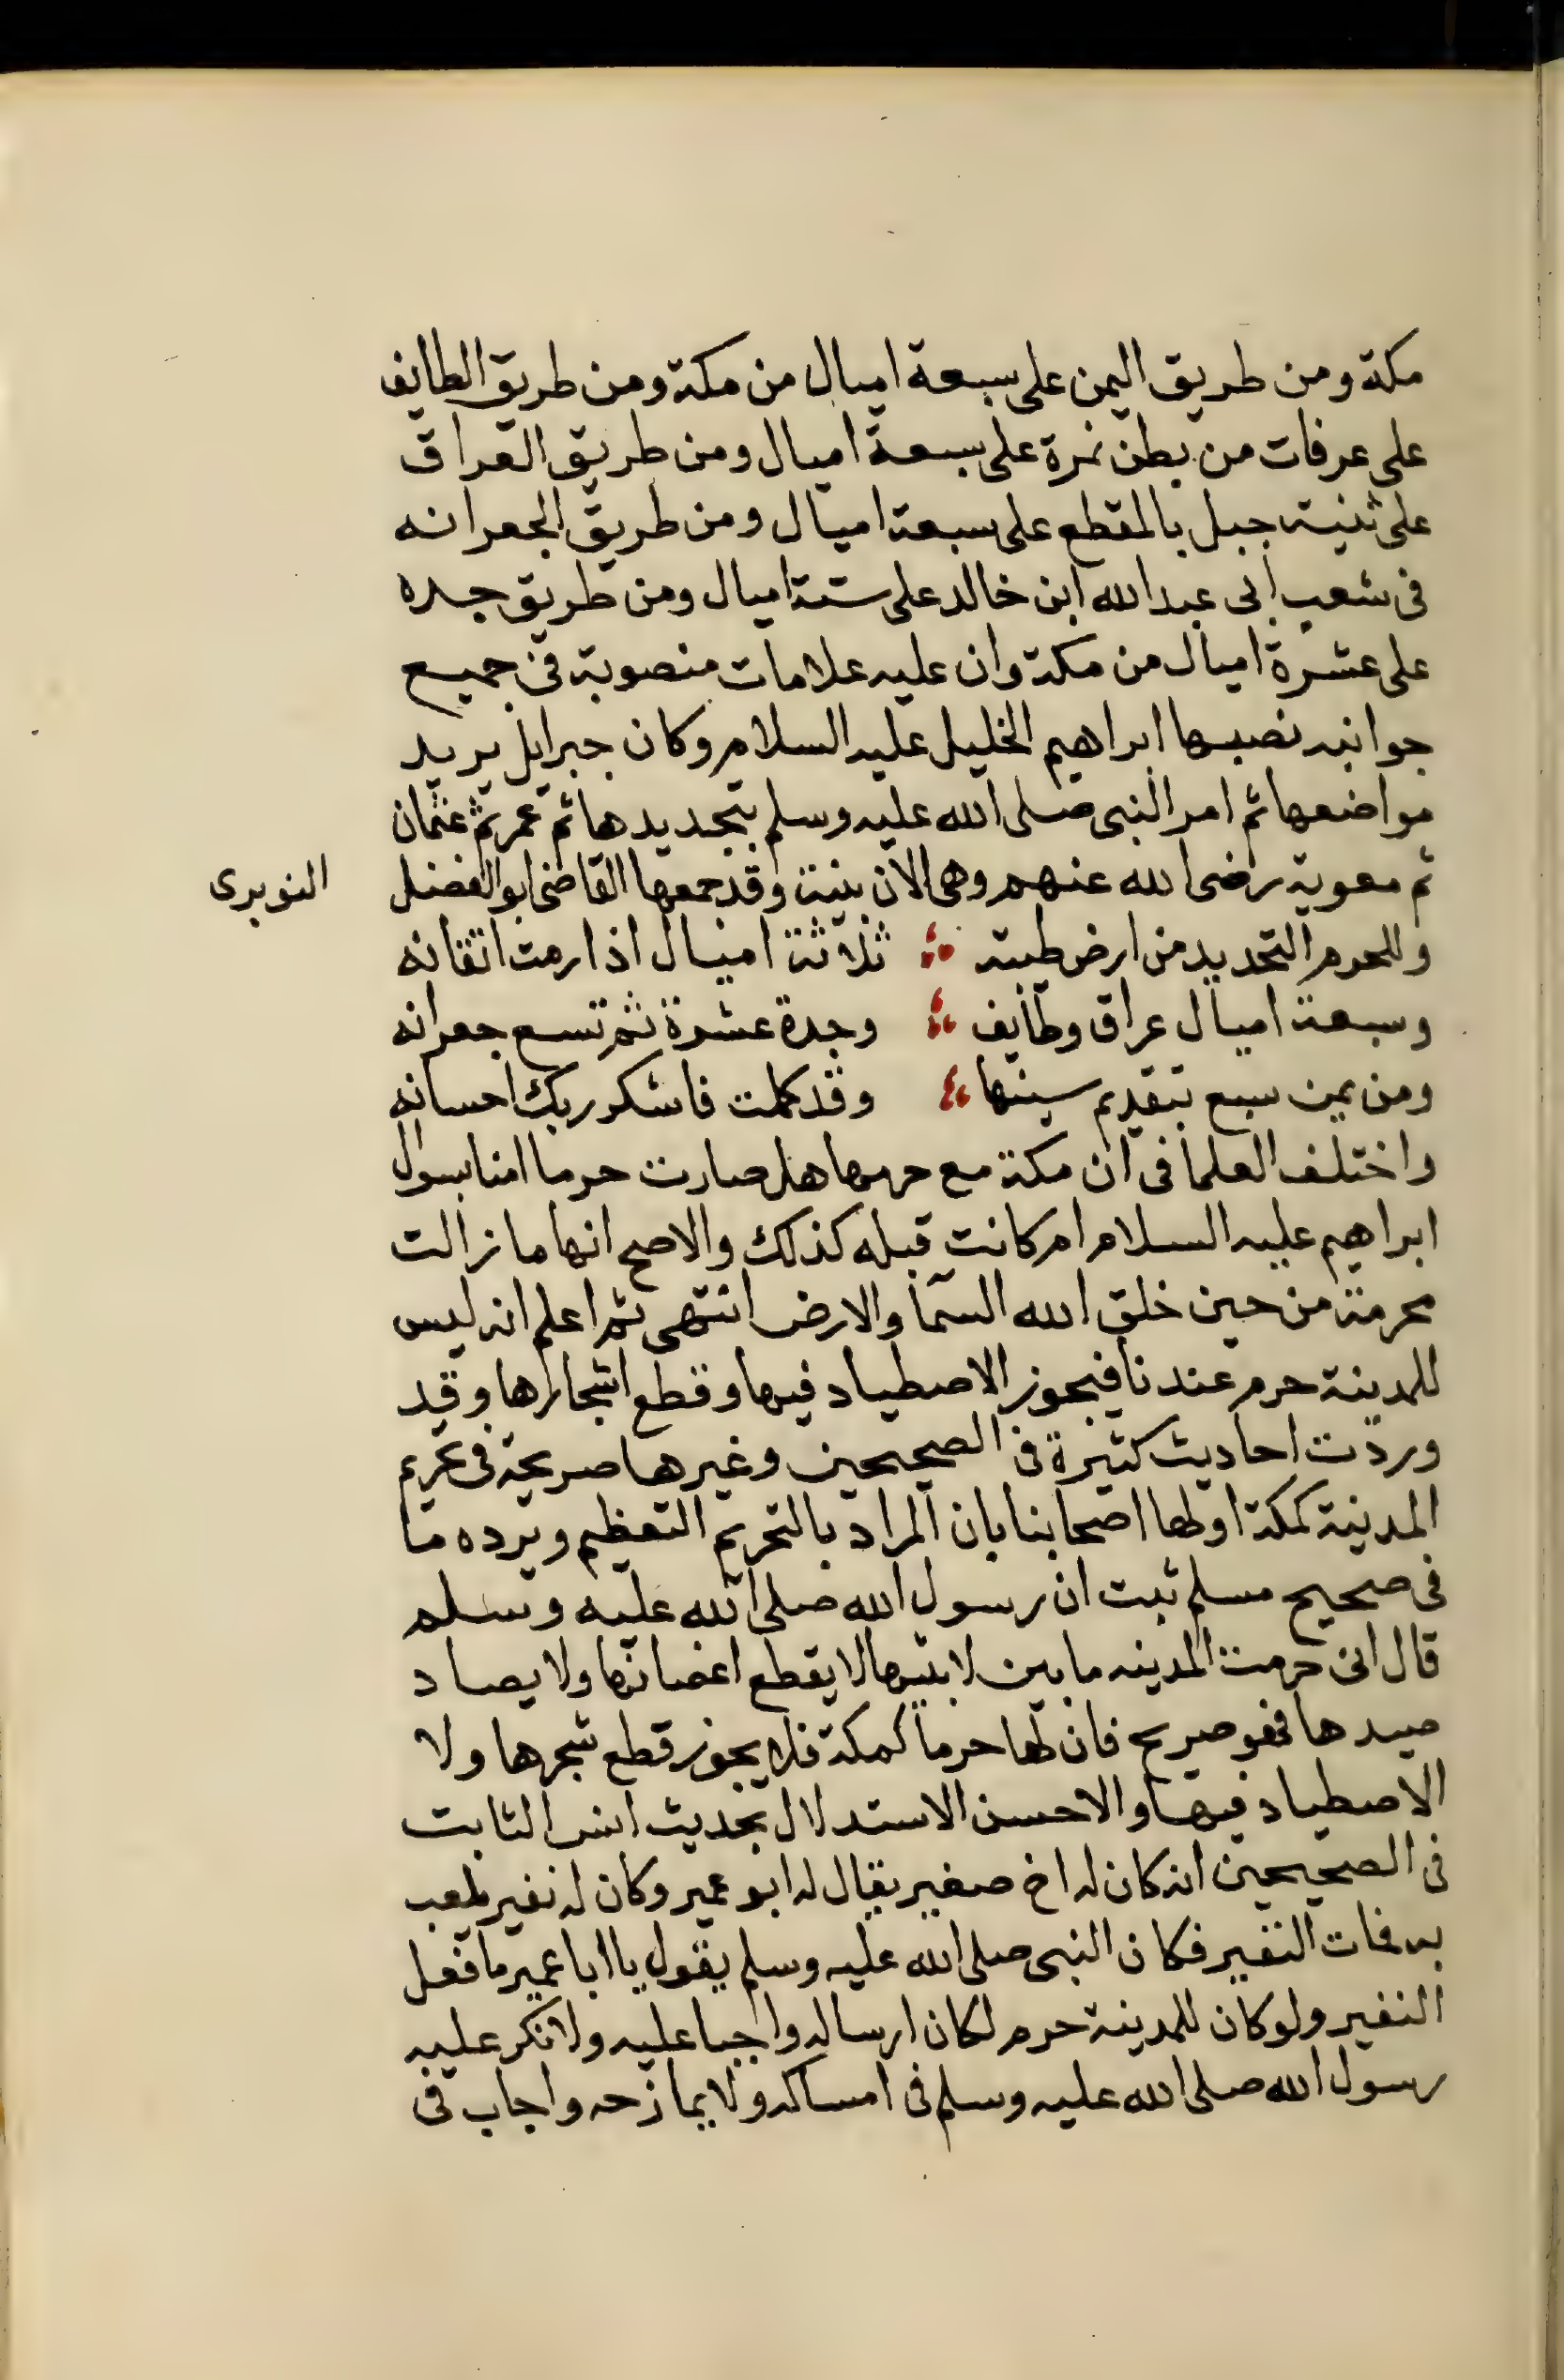 مكة ومن طريق اليمن على سبعة اميال من مكة ومن طريق الطايف
على عرفات من بطن نمرة على سبعة اميال ومن طريق العراق
على ثنية جبل بالمقطع على سبعة اميال ومن طريق الجعرانه
فى شعب ابى عبد الله ابن خالد على ستة اميال ومن طريق جده
على عشرة اميال من مكة وان عليه علامات منصوبة فى جميع
جوانبه نصبها ابراهيم الخليل عليه السلام وكان جبرايل يريه
مواضعها ثم امر النبى صلى الله عليه وسلم بتجديدها ثم عمر ثم عثمان
ثم معوية رضى الله عنهم وهى الان بينة وقد جمعها القاضى ابو الفضل
النويرى
وللحرم التحديد من ارض طيبة ثلاثة اميال اذا رمت اتقانه
وسبعة اميال عراق وطايف وجدة عشرة ثم تسع جعرانه
ومن يمن سبع بتقديم سينها وقد كملت فاشكر ربك احسانه
واختلف العلما فى ان مكة مع حرمها هل صارت حرما امنا بسوال
ابراهيم عليه السلام ام كانت قبله كذلك والاصح انها ما زالت
محرمة من حين خلق الله السما والارض انتهى ثم اعلم انه ليس
للمدينة حرم عندنا فيجوز الاصطياد فيها وقطع اشجارها وقد
وردت احاديث كثيرة فى الصحيحين وغيرها صريحة فى تحريم
المدينة كمكة اولها اصحابنا بان المراد بالتحريم التعظيم ويرده ما
فى صحيح مسلم ثبت ان رسول الله صلى الله عليه وسلم
قال انى حرمت المدينه ما بين لابتيها لا يقطع اغصانها ولا يصاد
صيدها فهو صريح فان لها حرما كمكة فلا يجوز قطع شجرها ولا
الاصطياد فيها والاحسن الاستدلال بحديث انس الثابت
فى الصحيحين انه كان له اخ صغير يقال له ابو عمير وكان له نغير يلعب
به فمات النغير فكان النبى صلى الله عليه وسلم يقول يا ابا عمير ما فعل
النغير ولو كان للمدينة حرم لكان ارساله واجبا عليه ولانكر عليه
رسول الله صلى الله عليه وسلم فى امساكه ولا يمازحه واجاب فى